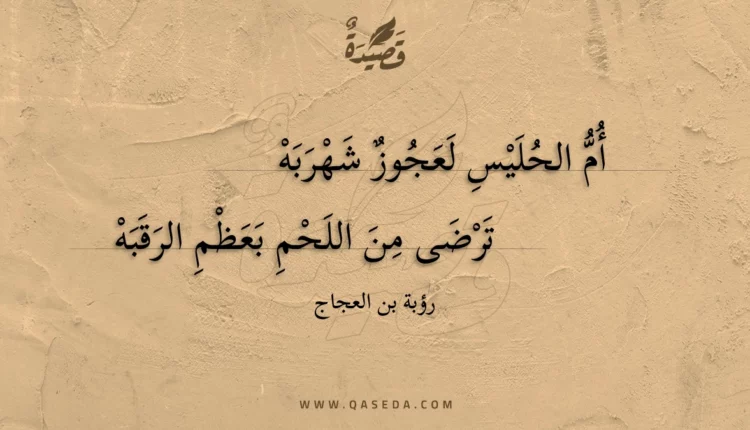 قَصِيدَةٌ
أُمُّ الحُلَيْسِ لَعَجُوزٌ شَهْرَبَهْ
تَرْضَى مِنَ اللَحْمِ بَعَظْمِ الرَقَبَهْ
رؤبة بن العجاج
WWW.QASEDA.COM